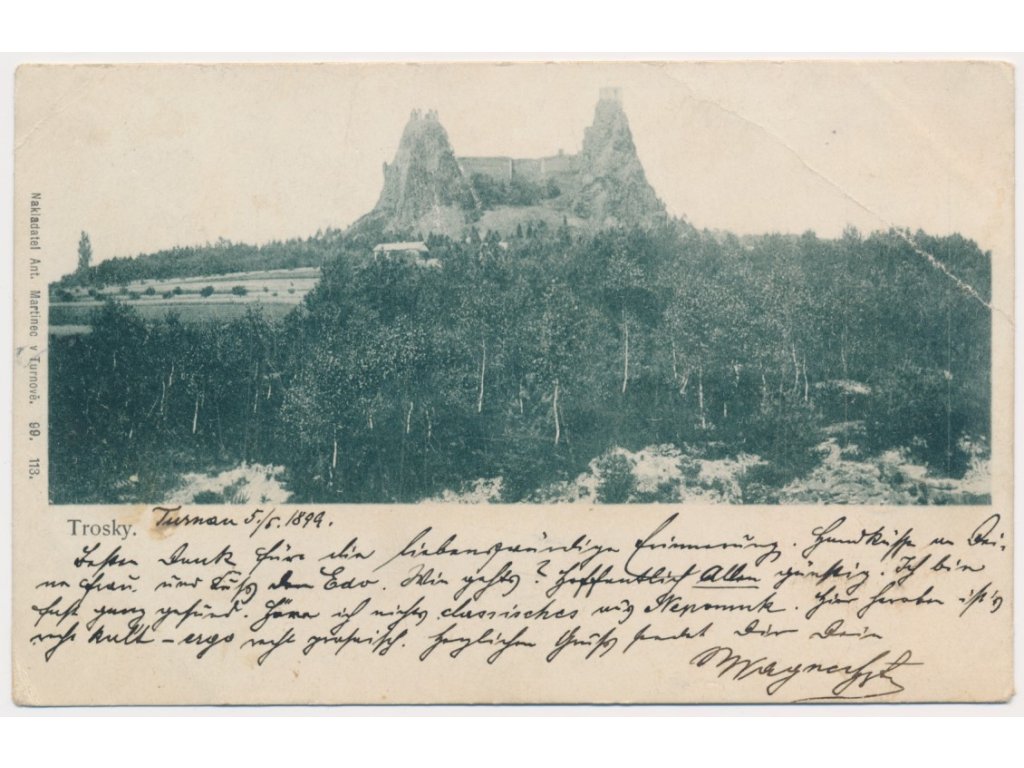 Nakladatel Ant. Martinec v Turnově. 99. 113.
Trosky. Turnau 5./5. 1899.
Besten Dank für die liebenswürdige Erinnerung. Handküsse an Dei-
ne Frau und Kuss dem Edo. Wie gehts? Hoffentlich Allen günstig. Ich bin
fast ganz gesund. Höre ich nichts classisches aus Nepomuk. Hier heroben ist's
recht kalt – ergo recht prosaisch. Herzlichen Gruss sendet Dir Dein